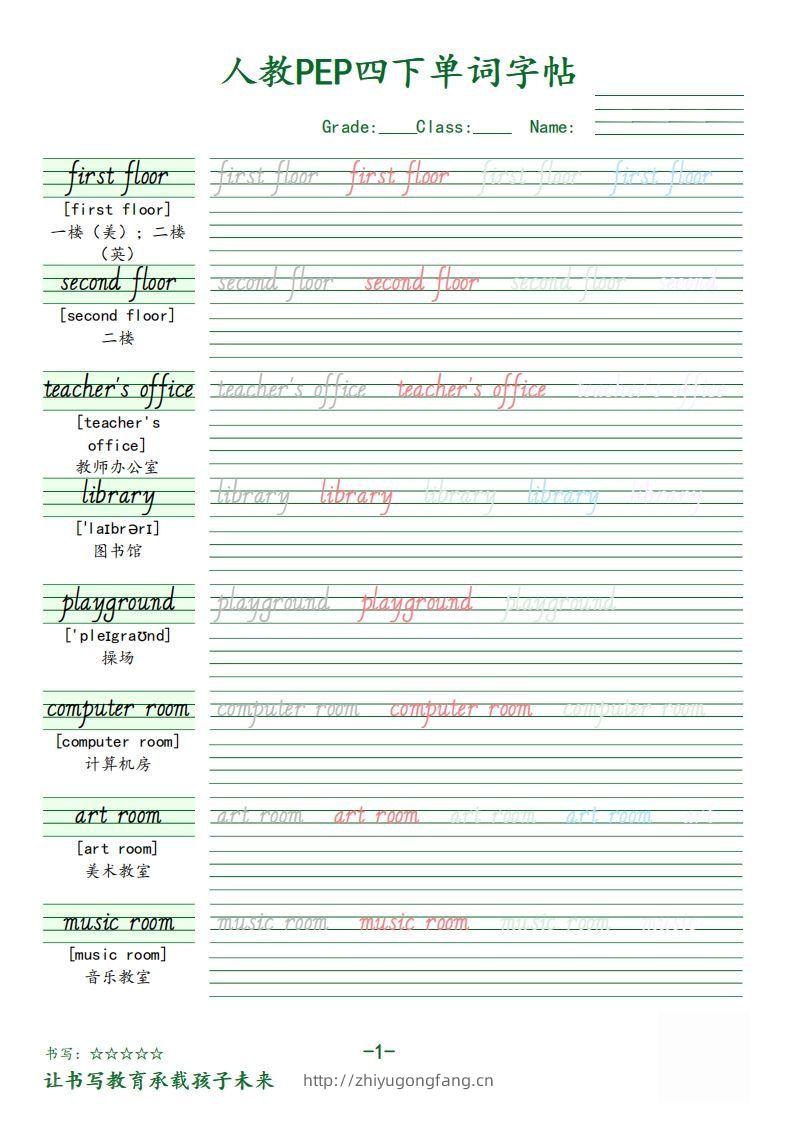 人教PEP四下单词字帖
Grade:____Class:____ Name:
first floor first floor first floor first floor first floor
[first floor]
一楼（美）；二楼
（英）
second floor second floor second floor second floor second
[second floor]
二楼
teacher's office teacher's office teacher's office teacher's office
[teacher's
office]
教师办公室
library library library library library library
['laɪbrərɪ]
图书馆
playground playground playground playground
['pleɪgraʊnd]
操场
computer room computer room computer room computer room
[computer room]
计算机房
art room art room art room art room art room art
[art room]
美术教室
music room music room music room music room music
[music room]
音乐教室
书写：☆☆☆☆☆
-1-
让书写教育承载孩子未来 http://zhiyugongfang.cn